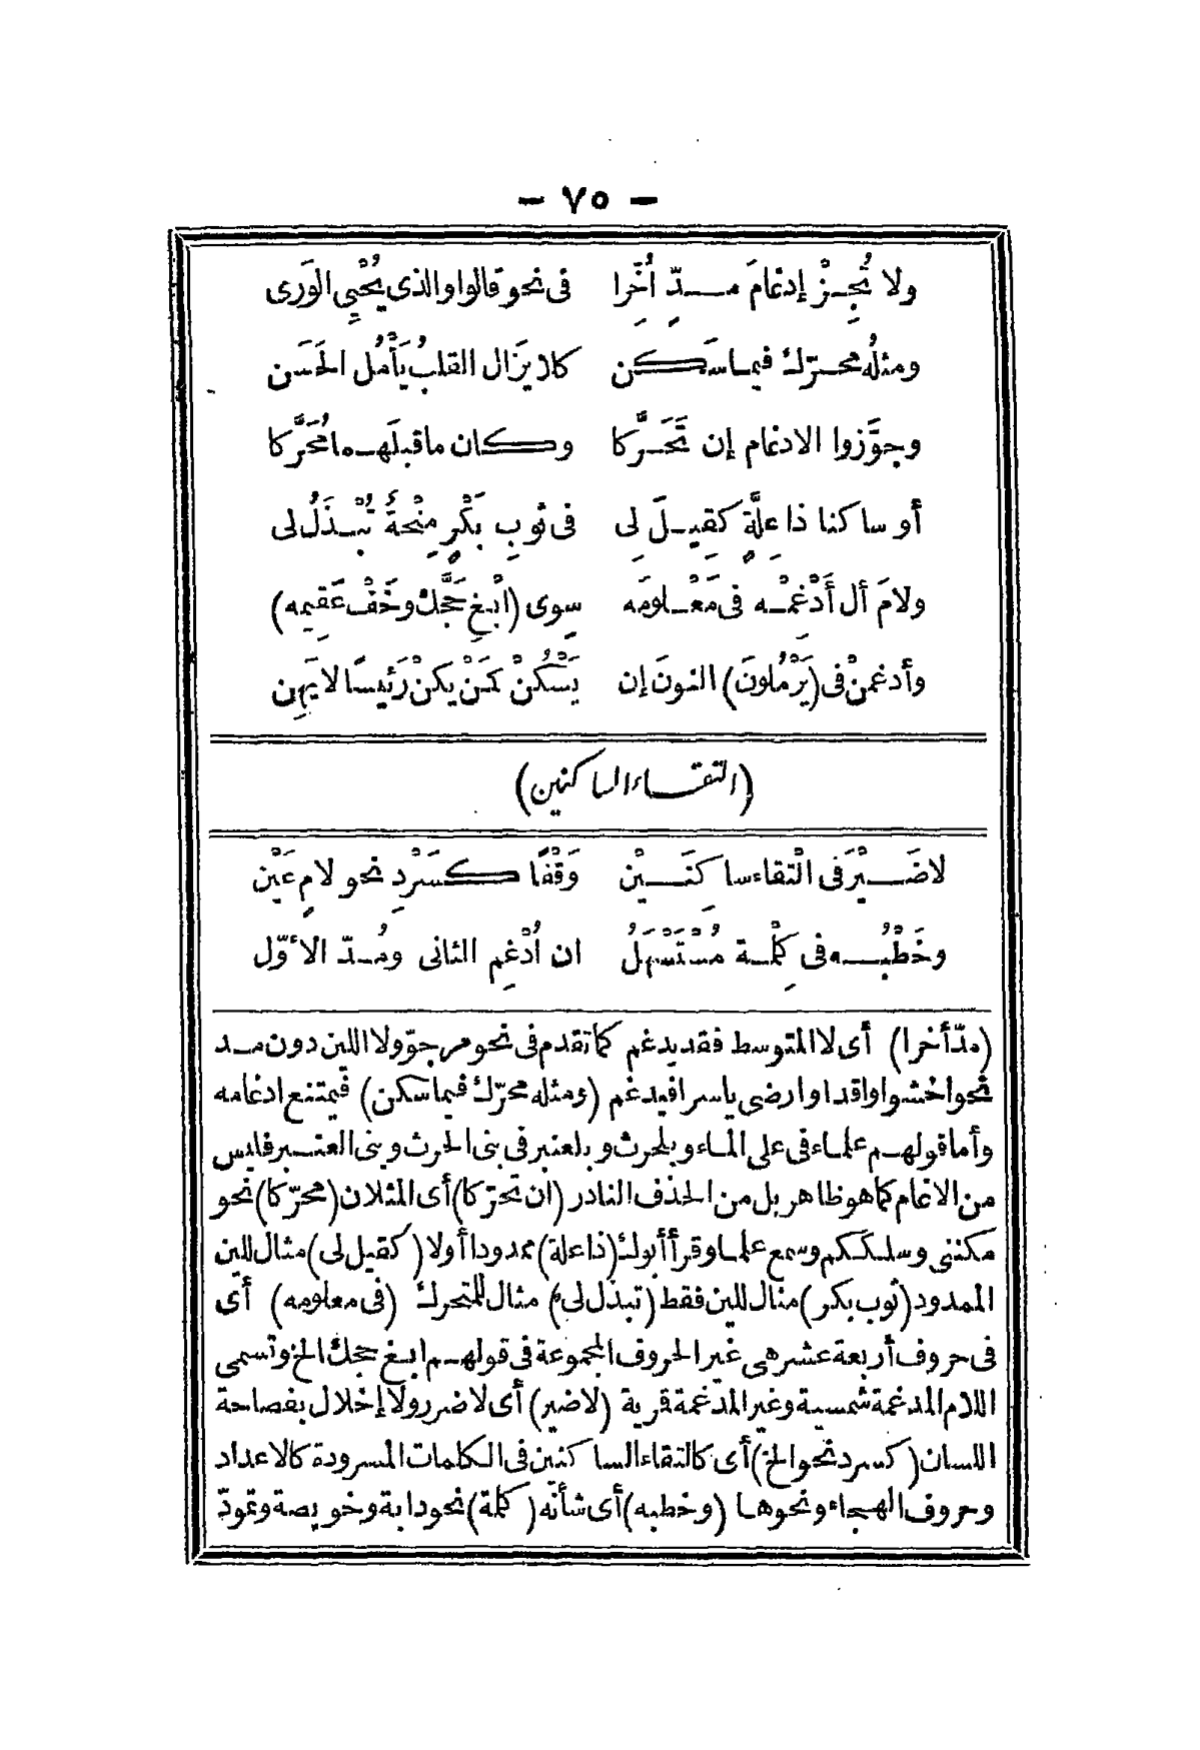 — ٧٥ —
ولا تُجِزْ إدغامَ مـدٍّ أُخِّرا    فى نحو قالوا والذى يُحْيِى الوَرى
ومثلُه محرّك فيما سَكن    كلا يَزَال القلبُ يَأْمُل الحَسَن
وجوَّزوا الادغام إن تَحَرَّكا    وكان ما قبلَهما مُحَرَّكا
أو ساكنا ذا عِلَّةٍ كقِيلَ لِى    فى ثوبِ بَكْرٍ مِنْحةٌ تُبْذَلُ لى
ولامَ أل أَدْغَمْه فى مَعْلومَه    سِوى (ابْغِ حَجَّك وخَفْ عَقِيمه)
وأدغمنْ فى (يَرْمُلونَ) النونَ إن    يَسْكُنْ كَمَنْ يكنْ رَئيسًا لا يَهِن
(التقاء الساكنين)
لا ضَيْرَ فى الْتقاء ساكِنَيْن    وَقْفًا كسَرْدِ نحو لامٍ عَيْن
وخَطْبُه فى كِلْمة مُسْتَسْهَلُ    ان اُدْغِم الثانى ومُدّ الأوّل
(مدّ أخرا) أى لا المتوسط فقد يدغم كما تقدم فى نحو مرجوّ ولا اللين دون مد
نحو اخشوا واقدا وارضى ياسرا فيدغم (ومثله محرّك فيما سكن) فيمتنع ادغامه
وأما قولهم علماء فى على الماء وبلحرث وبلعنبر فى بنى الحرث وبنى العنبر فليس
من الادغام كما هو ظاهر بل من الحذف النادر (ان تحرّكا) أى المثلان (محرّكا) نحو
مكننى وسلككم وسمع علما وقرأ أبوك (ذا علة) ممدودا أولا (كقيل لى) مثال للين
الممدود (ثوب بكر) مثال للين فقط (تبذل لى) مثال للمتحرك (فى معلومه) أى
فى حروف أربعة عشر هى غير الحروف المجموعة فى قولهم ابغ حجك الخ وتسمى
اللام المدغمة شمسية وغير المدغمة قمرية (لاضير) أى لا ضرر ولا إخلال بفصاحة
اللسان (كسرد نحو الخ) أى كالتقاء الساكنين فى الكلمات المسرودة كالاعداد
وحروف الهجاء ونحوها (وخطبه) أى شأنه (كلمة) نحو دابة وخويصة وتمودّ